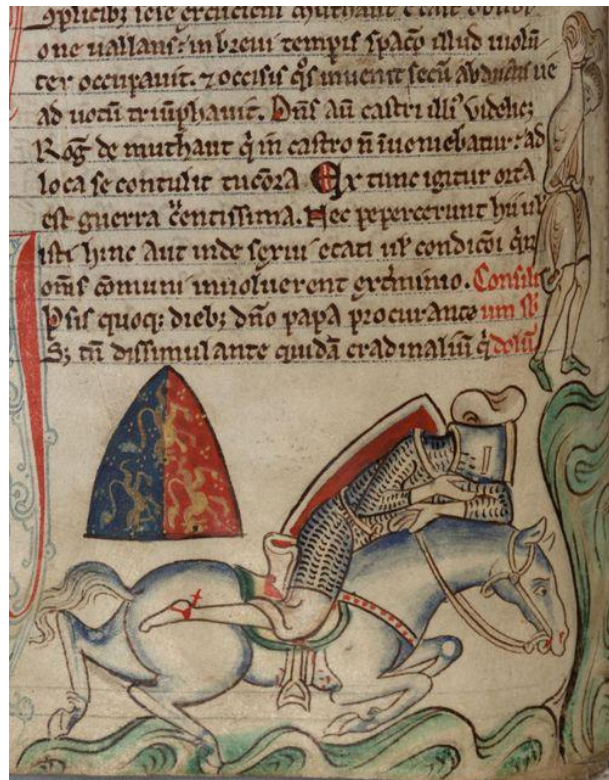 one uallans: in breui temp̄is spac̄o illud uiolēn
ter occupauit. ⁊ occisis q̄s inuenit secū abducens ue
ad uotū triūphauit. Dn̄s au̅ castri illi᾽ videlic;
Rog̅ de muthaut q̇ in castro n̄ īueniebatur: ad
loca se contulit tuciora Ex tunc igitur orta
est guerra c̄entissima. Nec pepercerunt hii ul̄
isti hinc aut inde sexui etati ul̄ condic̄oi q̇n
om̄s cōmuni inuoluerent ext̄minio. Consili
Ipsis quoq; dieb; dn̄o papa procurante um sb̄
S; tn̄ dissimulante quidā cradinaliū q̇ dolū